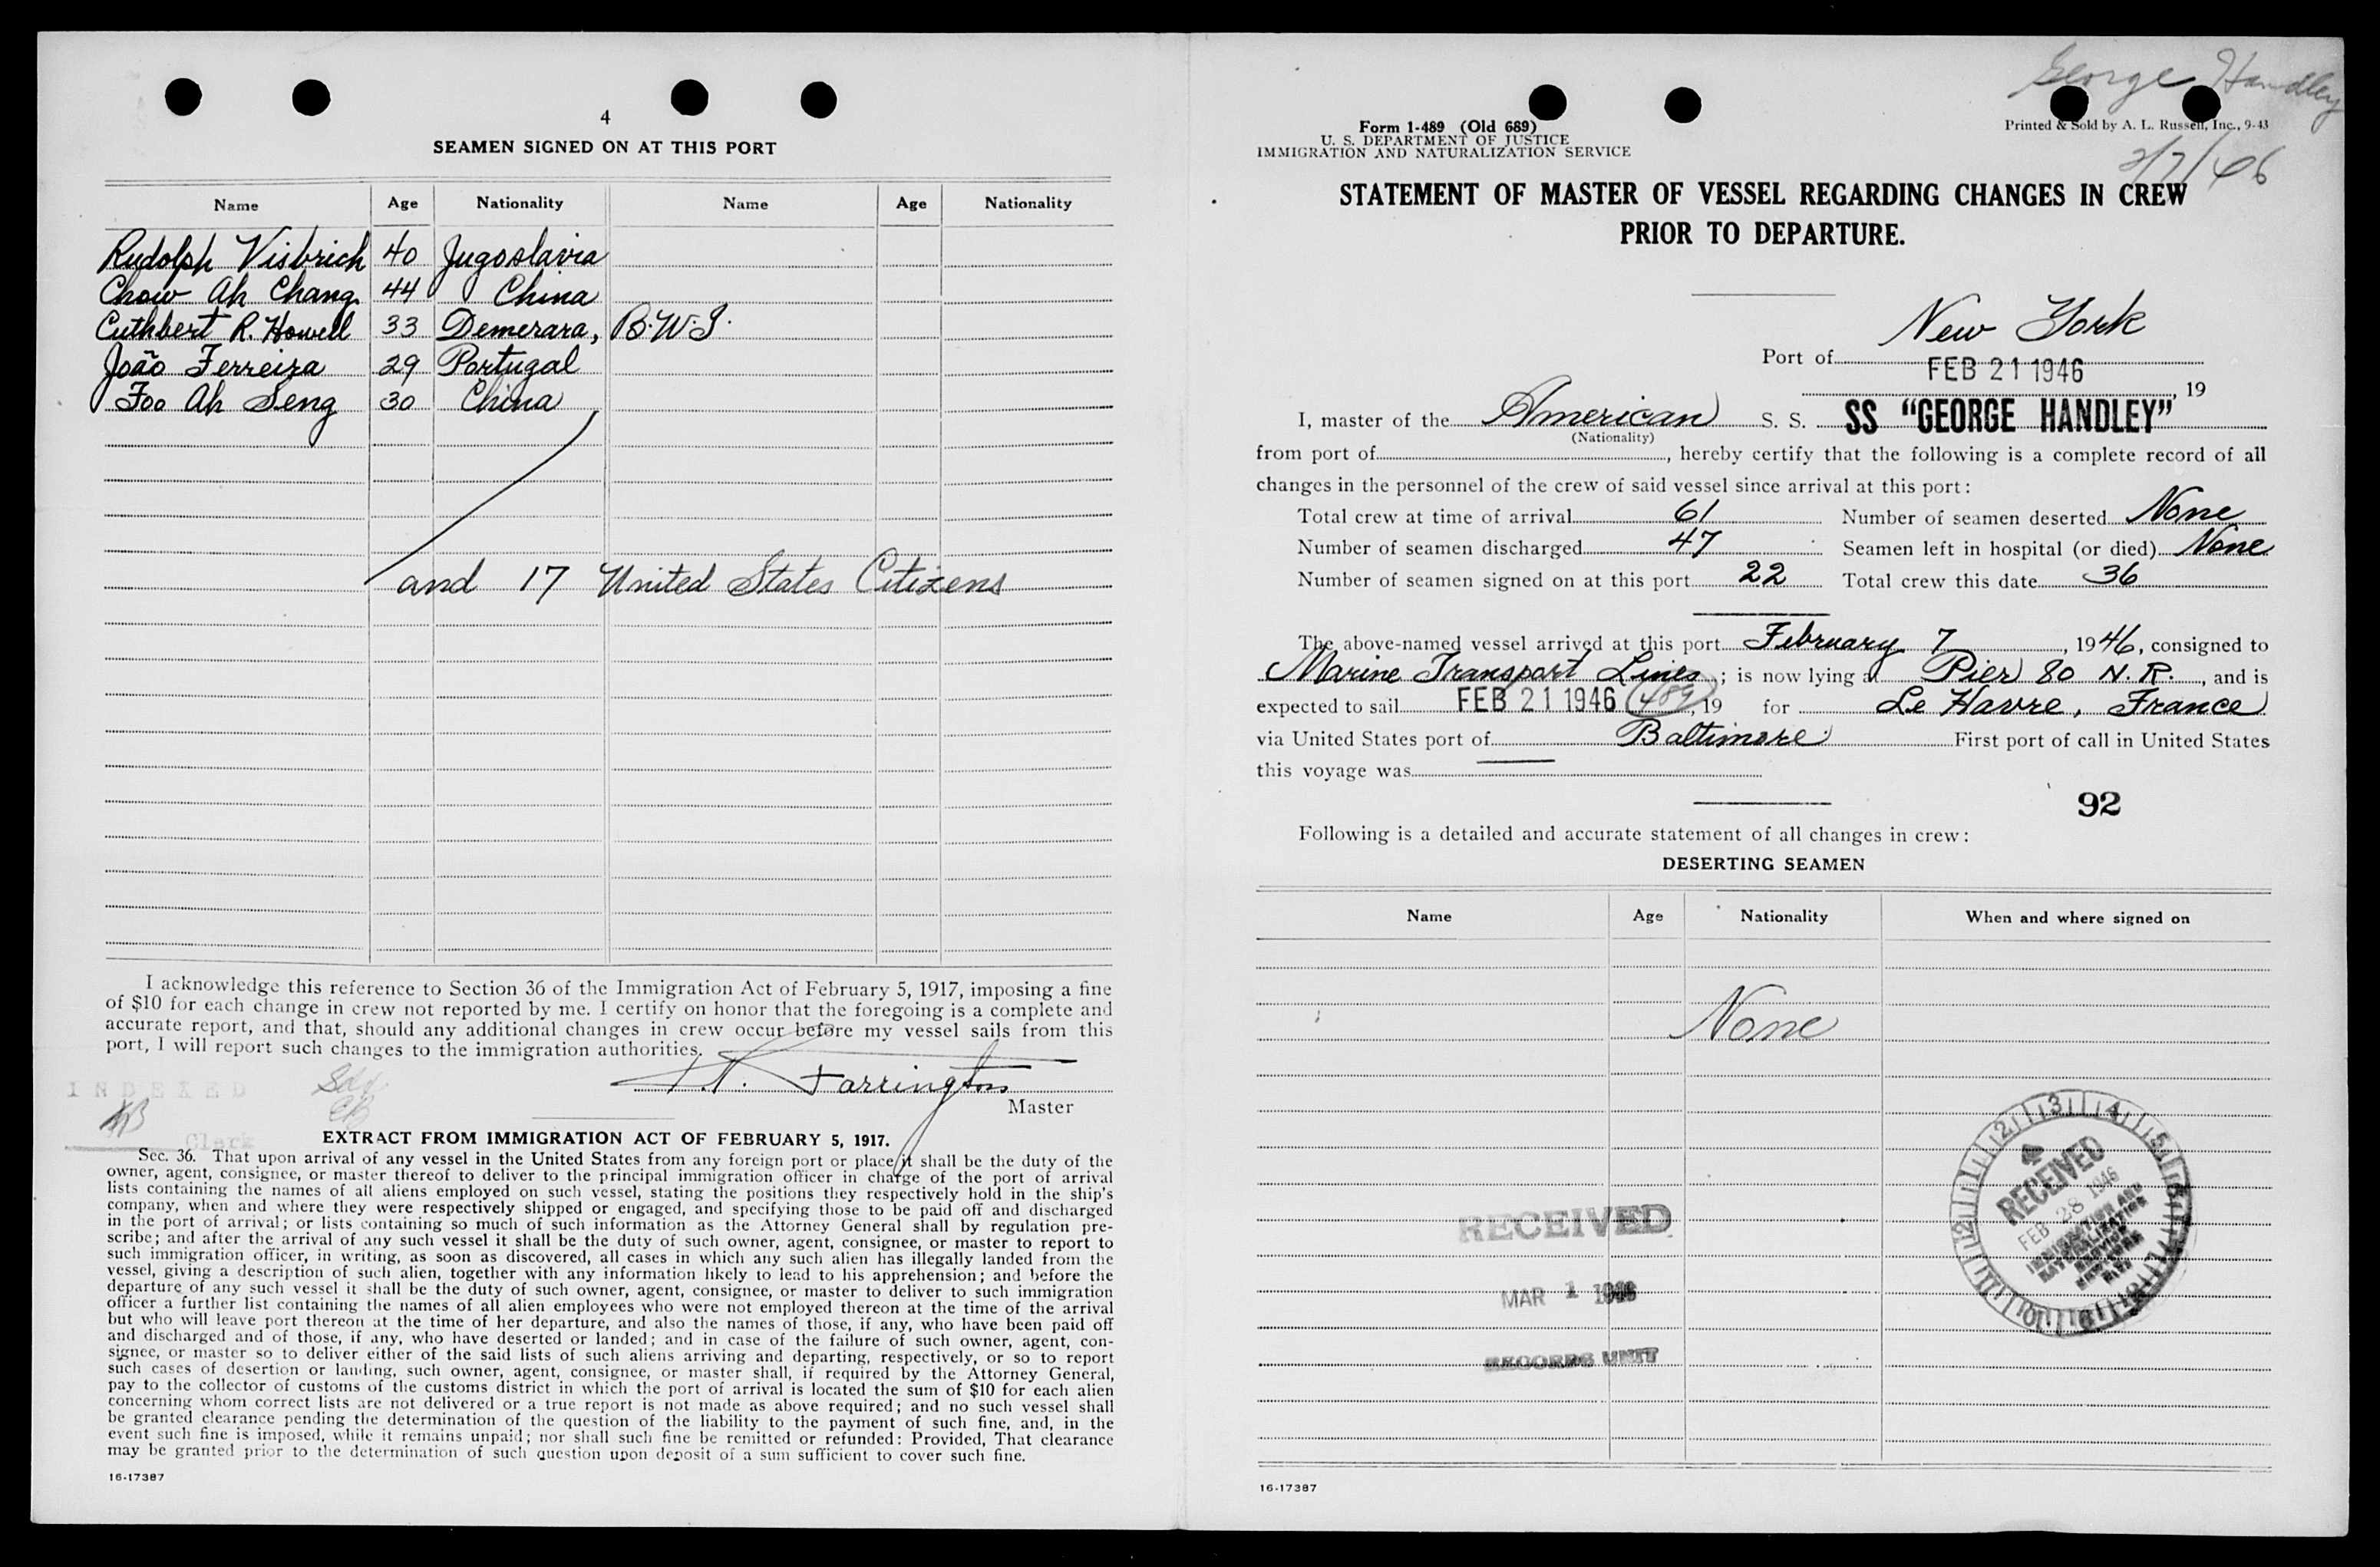 4
SEAMEN SIGNED ON AT THIS PORT
Name Age Nationality Name Age Nationality
Rudolph Visbrich 40 Jugoslavia
Chow Ah Chang 44 China
Cuthbert R. Howell 33 Demerara, B.W.I.
João Ferreira 29 Portugal
Foo Ah Seng 30 China
and 17 United States Citizens
I acknowledge this reference to Section 36 of the Immigration Act of February 5, 1917, imposing a fine
of $10 for each change in crew not reported by me. I certify on honor that the foregoing is a complete and
accurate report, and that, should any additional changes in crew occur before my vessel sails from this
port, I will report such changes to the immigration authorities.
Farrington
Master
INDEXED
Clerk
EXTRACT FROM IMMIGRATION ACT OF FEBRUARY 5, 1917.
Sec. 36. That upon arrival of any vessel in the United States from any foreign port or place it shall be the duty of the
owner, agent, consignee, or master thereof to deliver to the principal immigration officer in charge of the port of arrival
lists containing the names of all aliens employed on such vessel, stating the positions they respectively hold in the ship's
company, when and where they were respectively shipped or engaged, and specifying those to be paid off and discharged
in the port of arrival; or lists containing so much of such information as the Attorney General shall by regulation pre-
scribe; and after the arrival of any such vessel it shall be the duty of such owner, agent, consignee, or master to report to
such immigration officer, in writing, as soon as discovered, all cases in which any such alien has illegally landed from the
vessel, giving a description of such alien, together with any information likely to lead to his apprehension; and before the
departure of any such vessel it shall be the duty of such owner, agent, consignee, or master to deliver to such immigration
officer a further list containing the names of all alien employees who were not employed thereon at the time of the arrival
but who will leave port thereon at the time of her departure, and also the names of those, if any, who have been paid off
and discharged and of those, if any, who have deserted or landed; and in case of the failure of such owner, agent, con-
signee, or master so to deliver either of the said lists of such aliens arriving and departing, respectively, or so to report
such cases of desertion or landing, such owner, agent, consignee, or master shall, if required by the Attorney General,
pay to the collector of customs of the customs district in which the port of arrival is located the sum of $10 for each alien
concerning whom correct lists are not delivered or a true report is not made as above required; and no such vessel shall
be granted clearance pending the determination of the question of the liability to the payment of such fine, and, in the
event such fine is imposed, while it remains unpaid; nor shall such fine be remitted or refunded: Provided, That clearance
may be granted prior to the determination of such question upon deposit of a sum sufficient to cover such fine.
16-17387
George Handley
Form 1-489 (Old 689)
U. S. DEPARTMENT OF JUSTICE
IMMIGRATION AND NATURALIZATION SERVICE
Printed & Sold by A. L. Russell, Inc., 9-43
2/7/46
STATEMENT OF MASTER OF VESSEL REGARDING CHANGES IN CREW
PRIOR TO DEPARTURE.
Port of New York
FEB 21 1946, 19
I, master of the American S. S. SS "GEORGE HANDLEY"
(Nationality)
from port of , hereby certify that the following is a complete record of all
changes in the personnel of the crew of said vessel since arrival at this port:
Total crew at time of arrival 61 Number of seamen deserted None
Number of seamen discharged 47 Seamen left in hospital (or died) None
Number of seamen signed on at this port 22 Total crew this date 36
The above-named vessel arrived at this port February 7, 1946, consigned to
Marine Transport Lines; is now lying at Pier 80 N. R., and is
expected to sail FEB 21 1946 (489), 19 for Le Havre, France
via United States port of Baltimore First port of call in United States
this voyage was
92
Following is a detailed and accurate statement of all changes in crew:
DESERTING SEAMEN
Name Age Nationality When and where signed on
None
RECEIVED
FEB 28 1946
IMMIGRATION AND
NATURALIZATION
SERVICE
NEW YORK
RECEIVED
MAR 1 1946
RECORDS UNIT
16-17387